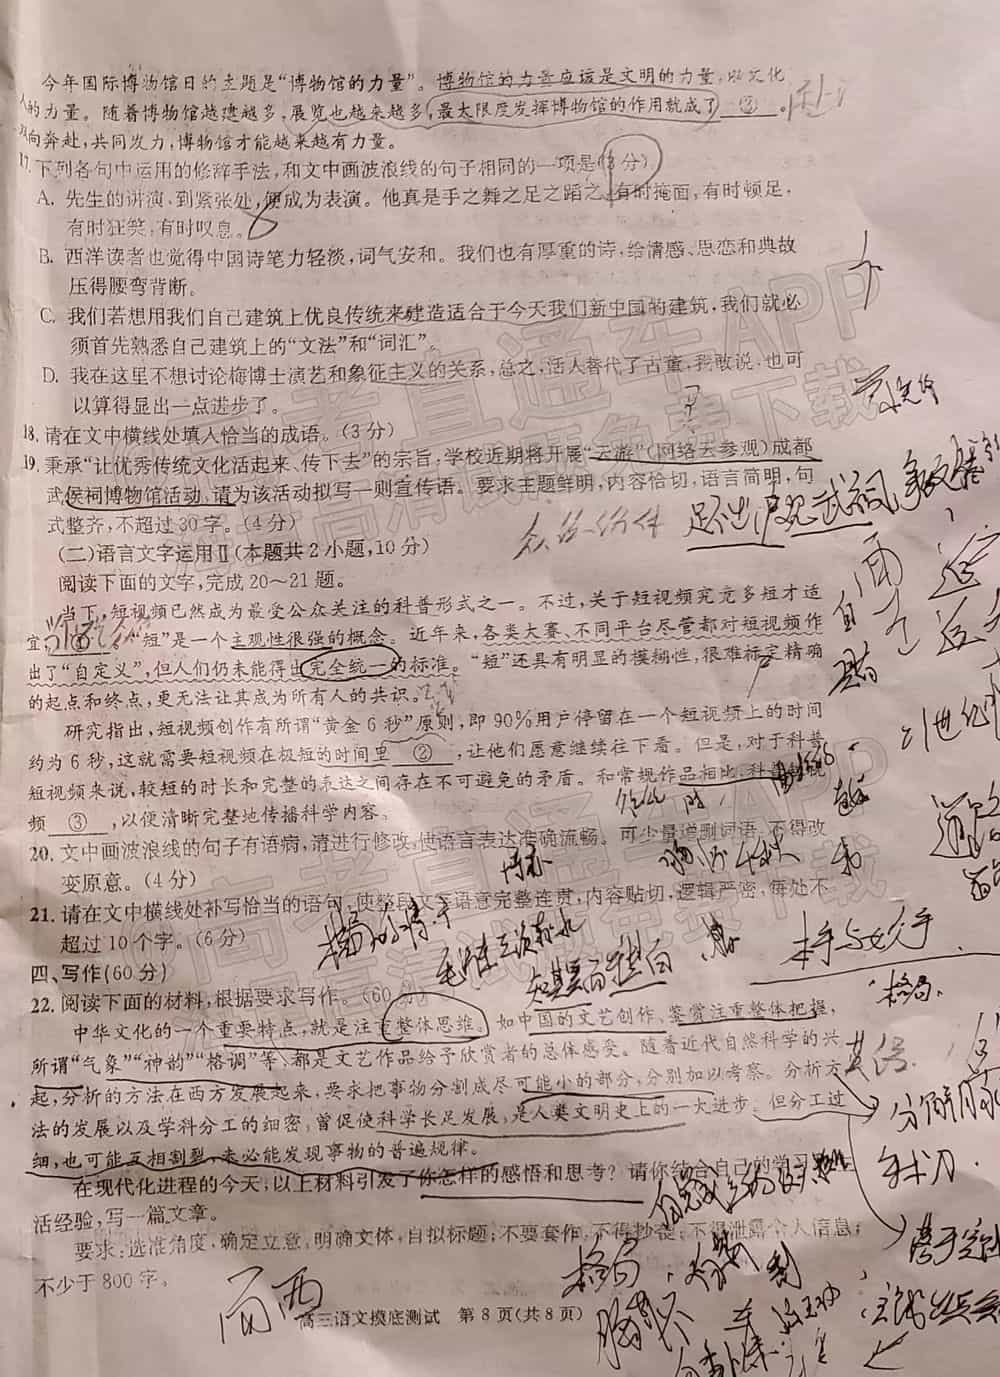 今年国际博物馆日的主题是“博物馆的力量”。博物馆的力量应该是文明的力量，以文化
人的力量。随着博物馆越建越多，展览也越来越多，最大限度发挥博物馆的作用就成了 ② 。
双向奔赴，共同发力，博物馆才能越来越有力量。
17.下列各句中运用的修辞手法，和文中画波浪线的句子相同的一项是(3分)
A. 先生的讲演，到紧张处，便成为表演。他真是手之舞之足之蹈之，有时掩面，有时顿足，
有时狂笑，有时叹息。
B. 西洋读者也觉得中国诗笔力轻淡，词气安和。我们也有厚重的诗，给情感、思恋和典故
压得腰弯背断。
C. 我们若想用我们自己建筑上优良传统来建造适合于今天我们新中国的建筑，我们就必
须首先熟悉自己建筑上的“文法”和“词汇”。
D. 我在这里不想讨论梅博士演艺和象征主义的关系，总之，活人替代了古董，我敢说，也可
以算得显出一点进步了。
18.请在文中横线处填入恰当的成语。(3分)
19.秉承“让优秀传统文化活起来、传下去”的宗旨，学校近期将开展“云游”(网络云参观)成都
武侯祠博物馆活动，请为该活动拟写一则宣传语。要求主题鲜明，内容恰切，语言简明，句
式整齐，不超过30字。(4分)
(二)语言文字运用Ⅱ(本题共2小题，10分)
阅读下面的文字，完成20～21题。
当下，短视频已然成为最受公众关注的科普形式之一。不过，关于短视频究竟多短才适
宜， ① “短”是一个主观性很强的概念。近年来，各类大赛、不同平台尽管都对短视频作
出了“自定义”，但人们仍未能得出完全统一的标准。“短”还具有明显的模糊性，很难标定精确
的起点和终点，更无法让其成为所有人的共识。
研究指出，短视频创作有所谓“黄金6秒”原则，即90%用户停留在一个短视频上的时间
约为6秒，这就需要短视频在极短的时间里 ② ，让他们愿意继续往下看。但是，对于科普
短视频来说，较短的时长和完整的表达之间存在不可避免的矛盾。和常规作品相比，科普短视
频 ③ ，以便清晰完整地传播科学内容。
20.文中画波浪线的句子有语病，请进行修改，使语言表达准确流畅。可少量增删词语，不得改
变原意。(4分)
21.请在文中横线处补写恰当的语句，使整段文字语意完整连贯，内容贴切，逻辑严密，每处不
超过10个字。(6分)
四、写作(60分)
22.阅读下面的材料，根据要求写作。(60分)
中华文化的一个重要特点，就是注重整体思维。如中国的文艺创作、鉴赏注重整体把握，
所谓“气象”“神韵”“格调”等，都是文艺作品给予欣赏者的总体感受。随着近代自然科学的兴
起，分析的方法在西方发展起来，要求把事物分割成尽可能小的部分，分别加以考察。分析方
法的发展以及学科分工的细密，曾促使科学长足发展，是人类文明史上的一大进步。但分工过
细，也可能互相割裂，未必能发现事物的普遍规律。
在现代化进程的今天，以上材料引发了你怎样的感悟和思考？请你结合自己的学习和生
活经验，写一篇文章。
要求：选准角度，确定立意，明确文体，自拟标题；不要套作，不得抄袭；不得泄露个人信息；
不少于800字。
高三语文摸底测试 第8页(共8页)
本手与妙手
格局
手术刀